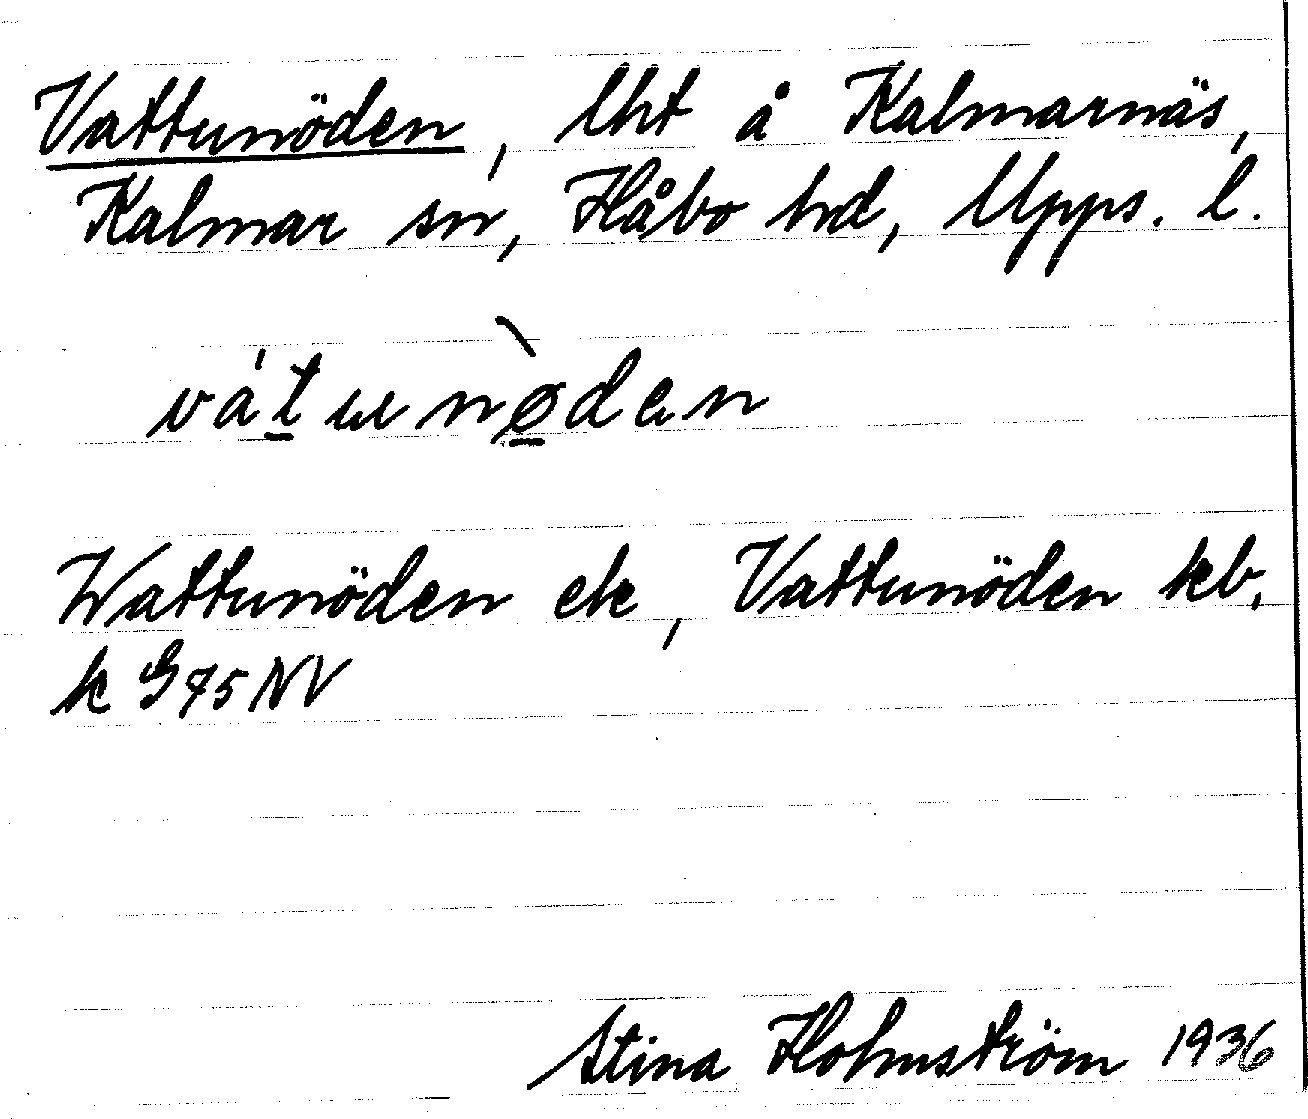 Vattunöden, lht å Kalmarnäs,
Kalmar sn, Håbo hd, Upps. l.
vát̠unø̠̀dən
Wattunöden ek, Vattunöden kb.
k G 75 NV
Stina Holmström 1936